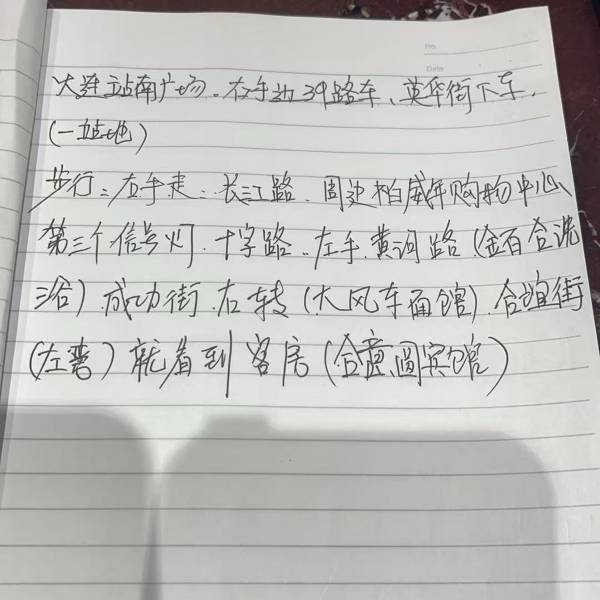 No.
Date
大连站南广场。右手边39路车、英华街下车.
(一站地)
步行:右手走:长江路.周边柏威年购物中心、
第三个信号灯.十字路.左手.黄河路(金百合洗
浴)成功街.右转(大风车面馆).合谊街
(左弯)就看到客房(合 圆宾馆)